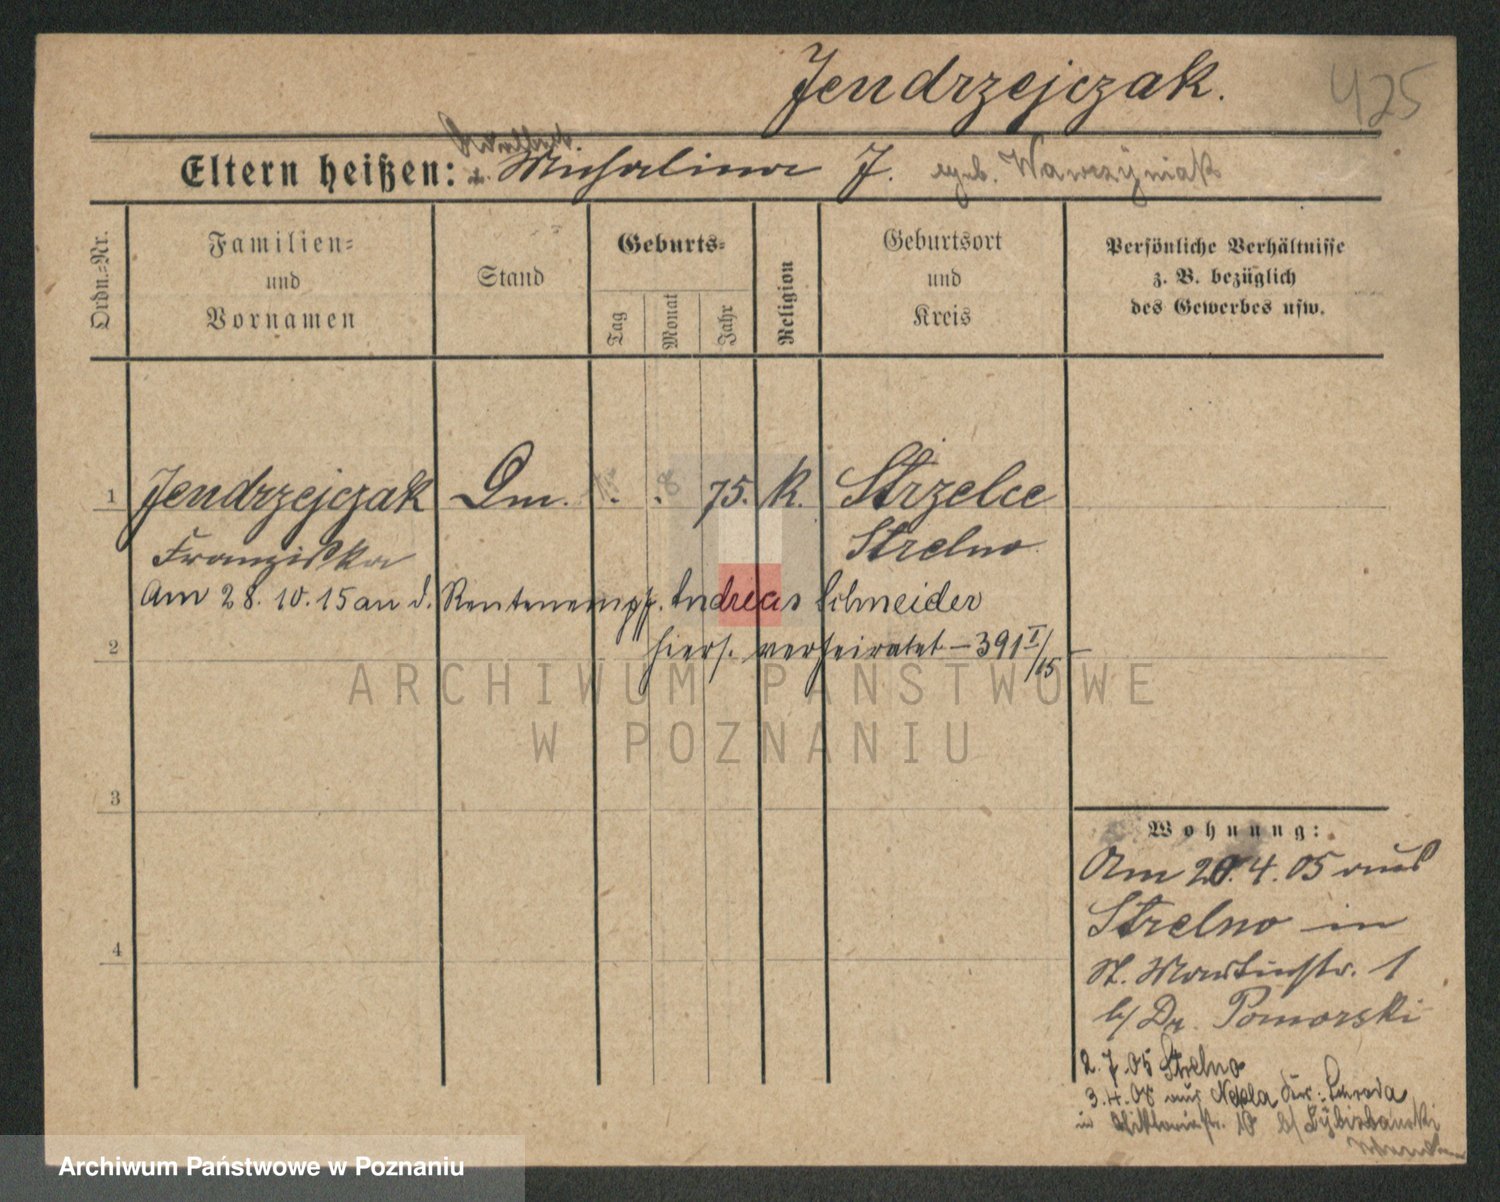 Jendrzejczak.
425
Eltern heißen: Michalina J. geb. Wawrzyniak
Ordn.-Nr.
Familien-
und
Vornamen
Stand
Geburts-
Tag
Monat
Jahr
Religion
Geburtsort
und
Kreis
Persönliche Verhältnisse
z. B. bezüglich
des Gewerbes usw.
1 Jendrzejczak 75. K. Strzelce
Franziska Strelno
Am 28.10.15 an d. Rentenempf. Andreas Schneider
2 hiers. verheiratet – 391 I/15 –
3
4
Wohnung:
Am 20.4.05 aus
Strelno in
St. Martinstr. 1
b/ Dr. Pomorski
2.7.05 Strelno
3.4.08 aus Nekla Kr.: Schroda
in Viktoriastr. 10 b/
ARCHIWUM PAŃSTWOWE
W POZNANIU
Archiwum Państwowe w Poznaniu